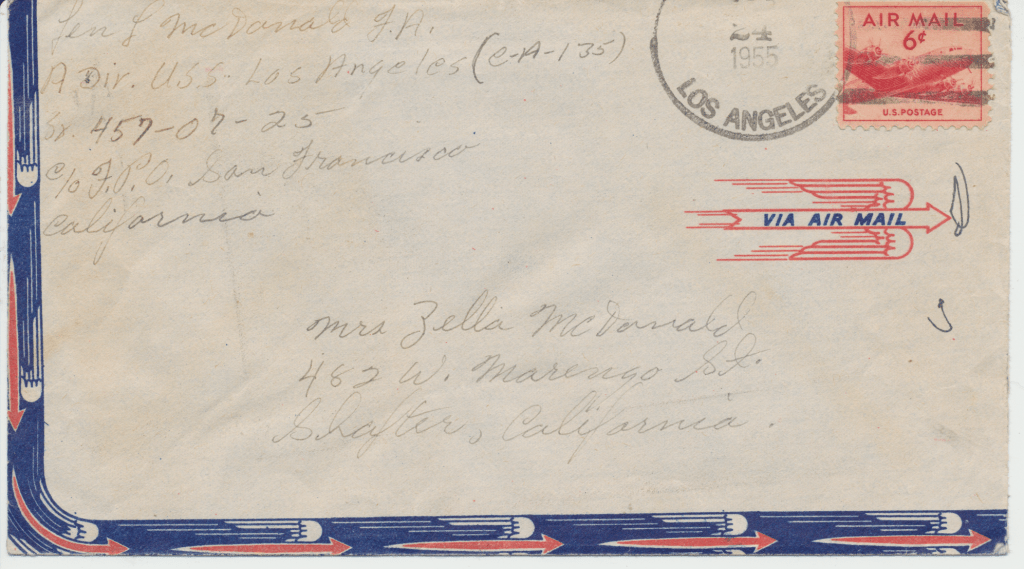 Len L McDonald F.A.
A Div. U.S.S. Los Angeles (C-A-135)
Sr. 457-07-25
c/o F.P.O. San Francisco
California
24
1955
LOS ANGELES
AIR MAIL
6¢
U.S. POSTAGE
VIA AIR MAIL
Mrs Zella McDonald
482 W. Marengo St.
Shafter, California.